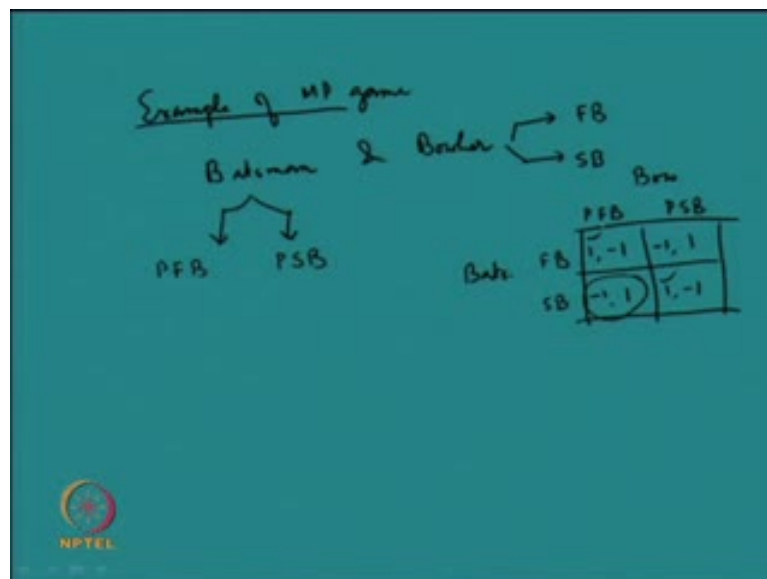 Example of MP game
Batsman & Bowler → FB
→ SB
PFB PSB
Bow
PFB PSB
Bats. FB 1, -1 -1, 1
SB -1, 1 1, -1
NPTEL